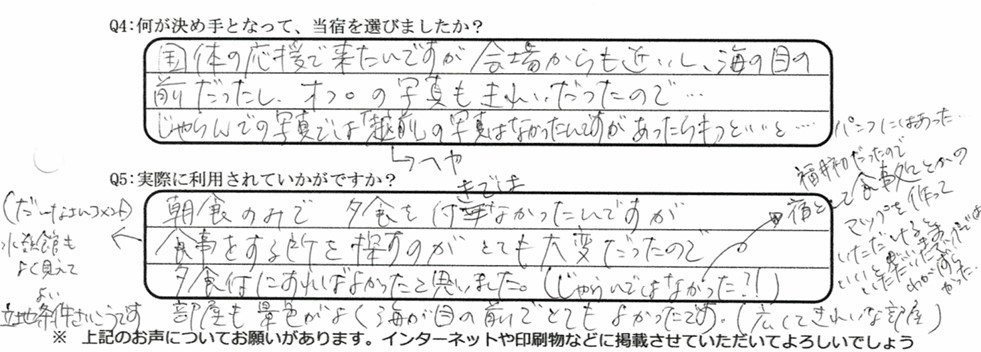 Q4:何が決め手となって、当宿を選びましたか？
国体の応援で来たいですが会場からも近いし、海の目の
前だったし、オフロの写真もきれいだったので…
じゃらんでの写真では「越前」の写真はなかったんですがあったらもっといいと…
↳へや
パンフにはあった…
Q5:実際に利用されていかがですか？
朝食のみで 夕食を付けなかったんですが
食事をする所を探すのがとても大変だったので
夕食付にすればよかったと思いました。(じゃらんではなかった?!)
部屋も景色がよく海が目の前でとてもよかったです。(広くてきれいな部屋)
福井初だったので
宿として食事処とかの
マップを作って
いただけると
いいと思います
わかりずら
かった…
水族館も
よく見えて
よい
立地条件さいこうです
※ 上記のお声についてお願いがあります。インターネットや印刷物などに掲載させていただいてよろしいでしょう